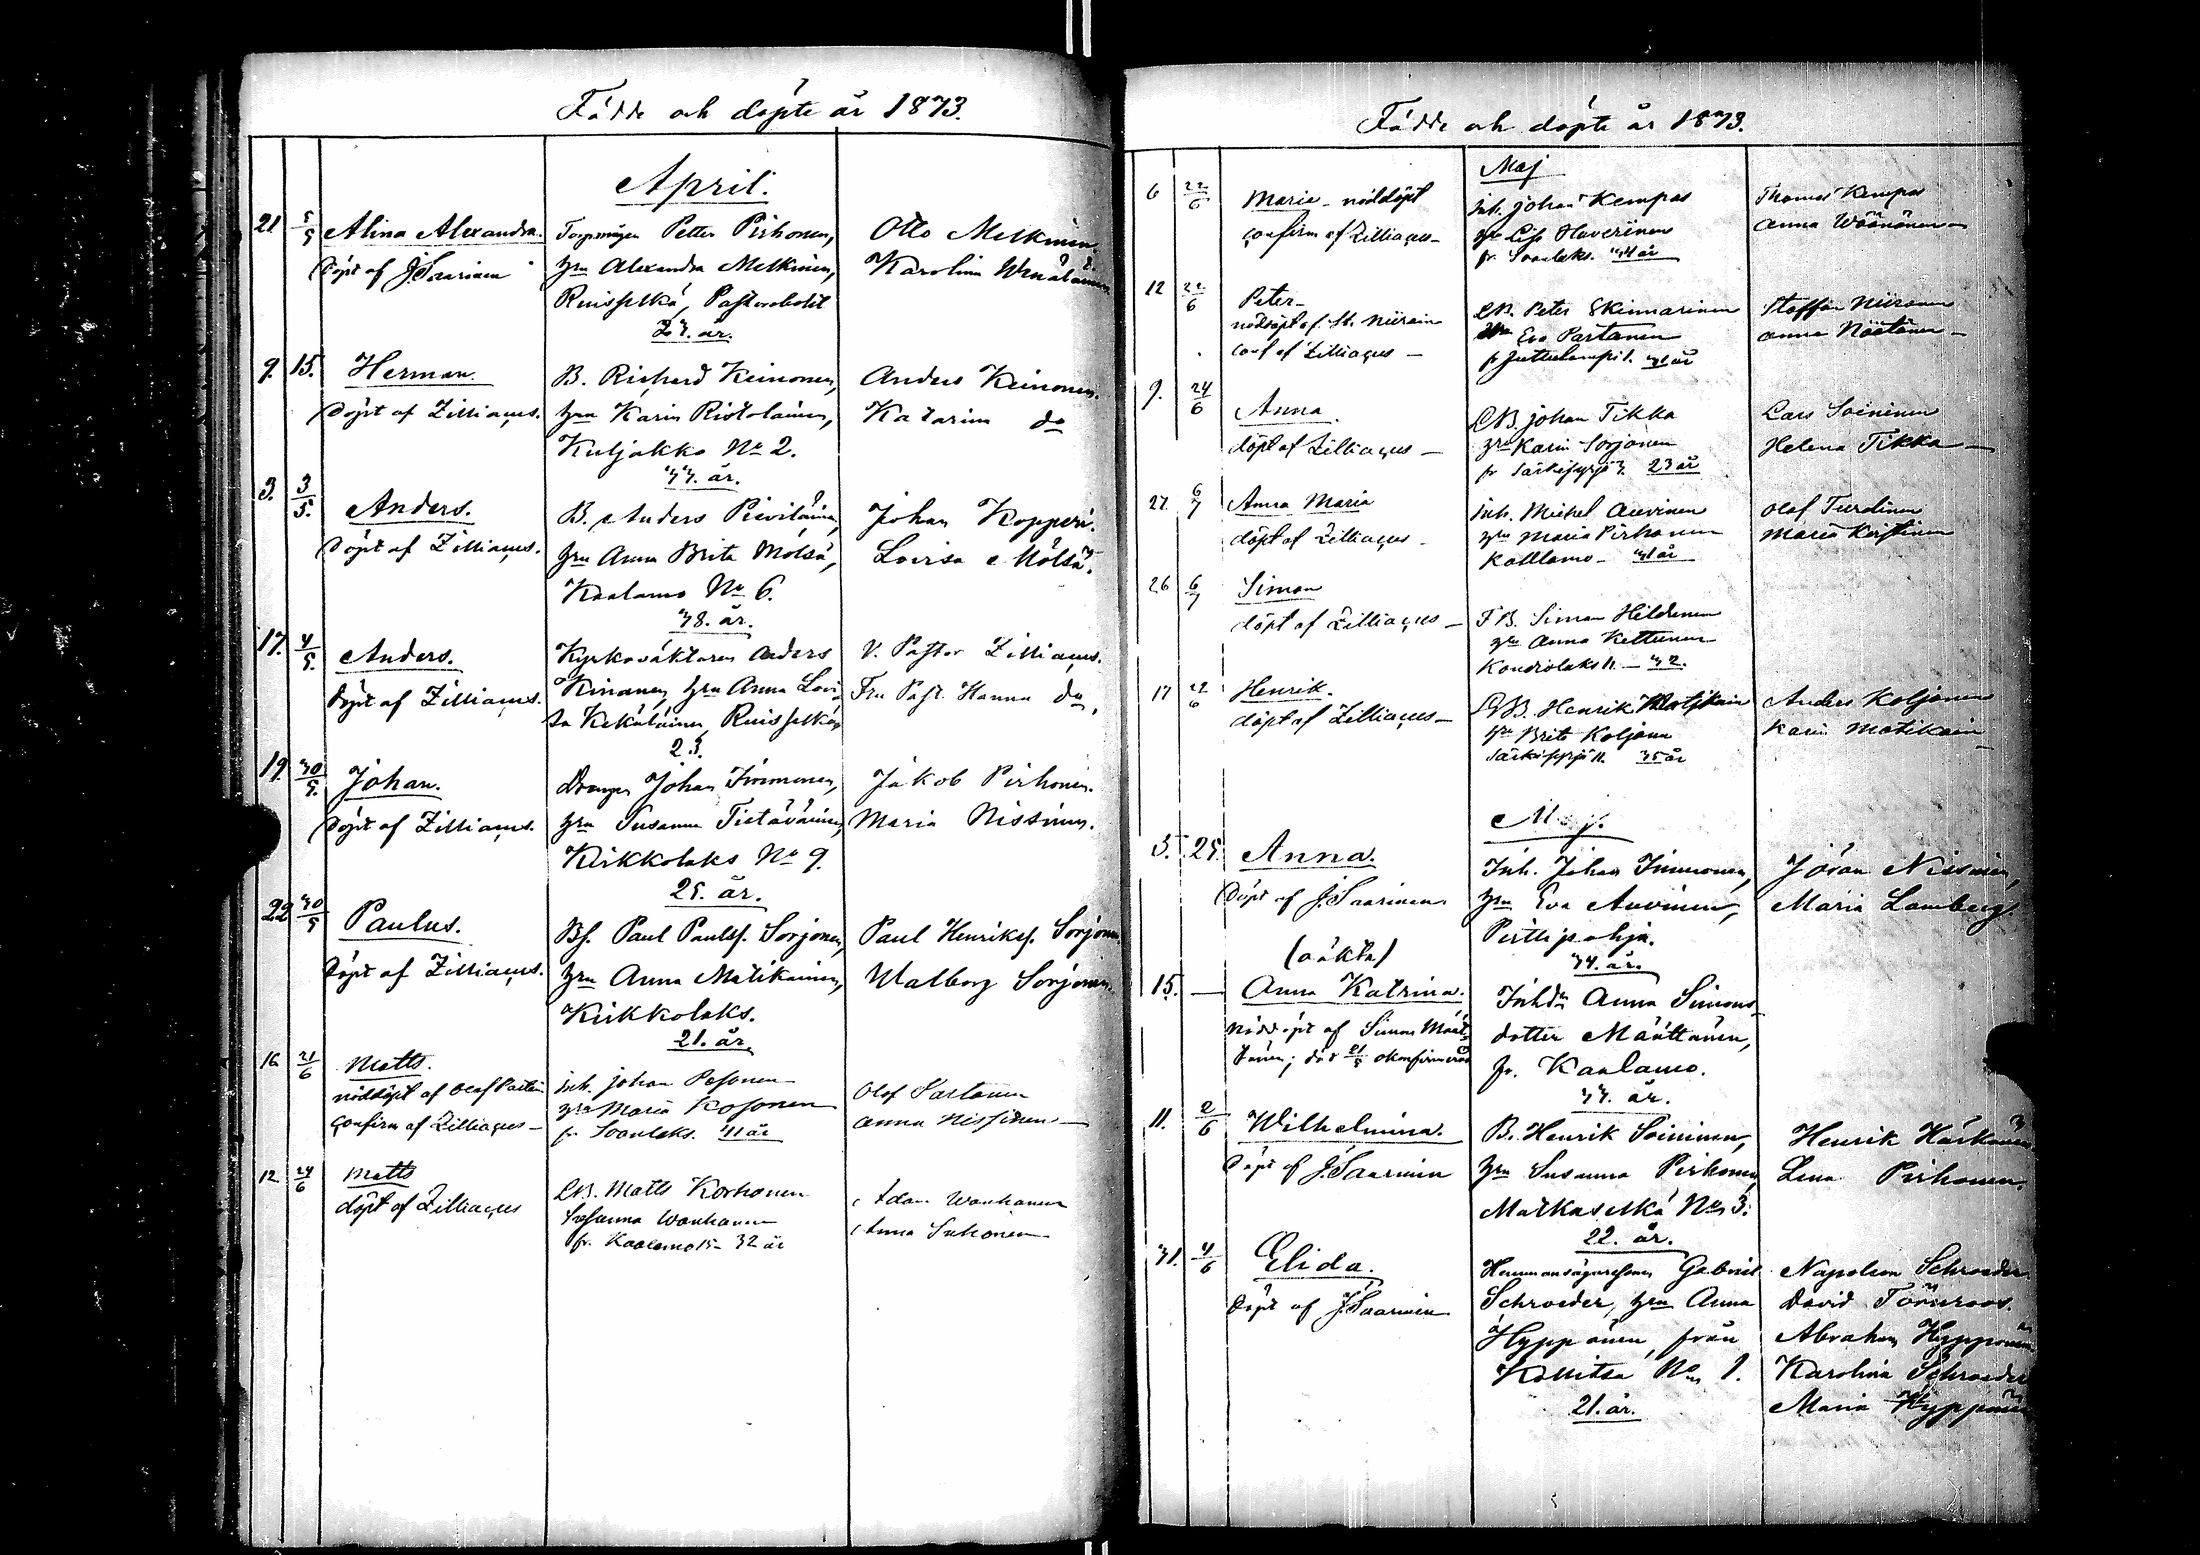 Födde och döpte år 1873.
April.
21 5/5 Alina Alexandra. Torpmågen Petter Pirhonen, Otto Melkinen,
Döpt af J. Saarinen hru Alexandra Melkinen, Karolina
Ruisselkä, Pastorsbolet
23. år.
9. 15. Herman. B. Richard Keinonen, Anders Keinonen.
Döpt af Zilliacus. hru Karin Ristolainen, Katarina do
Kuljakko No 2.
33. år.
3. 3/5. Anders. B. Anders Johan Kopperi.
Döpt af Zilliacus. hru Anna Brita Mölsä, Lovisa Mölsä.
Kaalamo No 6.
38. år.
17. 4/5. Anders. Kyrkovaktaren Anders V. Pastor Zilliacus.
Döpt af Zilliacus. Kinanen, hru Anna Lovi- Fru Past. Hanna do,
sa Kekäläinen, Ruisselkä,
23.
19. 30/5. Johan. Drengen Johan Immonen, Jakob Pirhonen.
Döpt af Zilliacus. hru Susanna Tietäväinen, Maria Nissinen.
Kirkkolaks No 9.
25. år.
22 30/5 Paulus. Bs. Paul Paulss. Sorjonen, Paul Henrikss. Sorjonen
Döpt af Zilliacus. hru Anna Matikainen, Walborg Sorjonen.
Kirkkolaks.
21. år.
16 21/6 Matts. inh. Johan Pesonen Olof Partanen
nöddöpt af Olof hru Maria Kosonen Anna Nissinen —
confirm af Zilliacus — fr. Soanlaks. 41 år
12 24/6 Matts LB. Matts Korhonen Adam Wanhanen
döpt af Zilliacus Susanna Wanhanen Anna
fr. Kaalamo 15 — 32 år
Födde och döpte år 1873.
Maj
6 22/6 Maria — nöddöpt inh. Johan Kempas Thomas Kempas
confirm af Zilliacus — hru Lisa Haverinen Anna Wäänänen —
fr. Soanlaks. 34 år
12 22/6 Peter — LB. Peter Skinnarinen Staffan Niiranen
nöddöpt af St. hru Eva Partanen Anna Näätänen —
conf af Zilliacus — 31 år
9. 24/6 Anna. LB. Johan Tikka Lars Soininen
döpt af Zilliacus — hru Karin Sorjonen Helena Tikka —
fr Särkisyrjä 7. 23 år
27 6/7 Anna Maria inh. Michel Auvinen Olof Turdinen
döpt af Zilliacus — hru Maria Pirhonen Maria
Kaalamo — 31 år
26 6/7 Simon
döpt af Zilliacus — F B. Simon Hildenen
hru Anna Kettunen
Kondrolaks 11. — 32.
17 22/6 Henrik. LB. Henrik Matikain Anders Koljonen
döpt af Zilliacus — hru Brita Koljonen Karin Matikain —
Särkisyrjä 11. 35 år
Maj.
3. 25. Anna. Inh. Johan Immonen, Jöran Nissinen,
Döpt af J. Saarinen hru Eva Auvinen, Maria Lamberg.
Pirttipohja.
34. år.
(oäkta)
15. — Anna Katrina. Inhdn Anna Simons-
nöddöpt af Simon Määt- dotter Määttänen,
tänen; död 21/5 okonfirmerad fr. Kaalamo.
33. år.
11. 2/6 Wilhelmina. B. Henrik Soininen, Henrik Härkönen
Döpt af J. Saarinen hru Susanna Pirhonen, Lena Pirhonen.
Matkaselkä No 3.
22. år.
31. 4/6 Elida. Hemmansägaresonen Gabriel Napoleon Schroeder
Döpt af J. Saarinen Schroeder, hru Anna David Törnroos.
Hyppönen, från Abraham Hyppönen
Kallitsa No 1. Karolina Schroeder
21. år. Maria Hyppönen